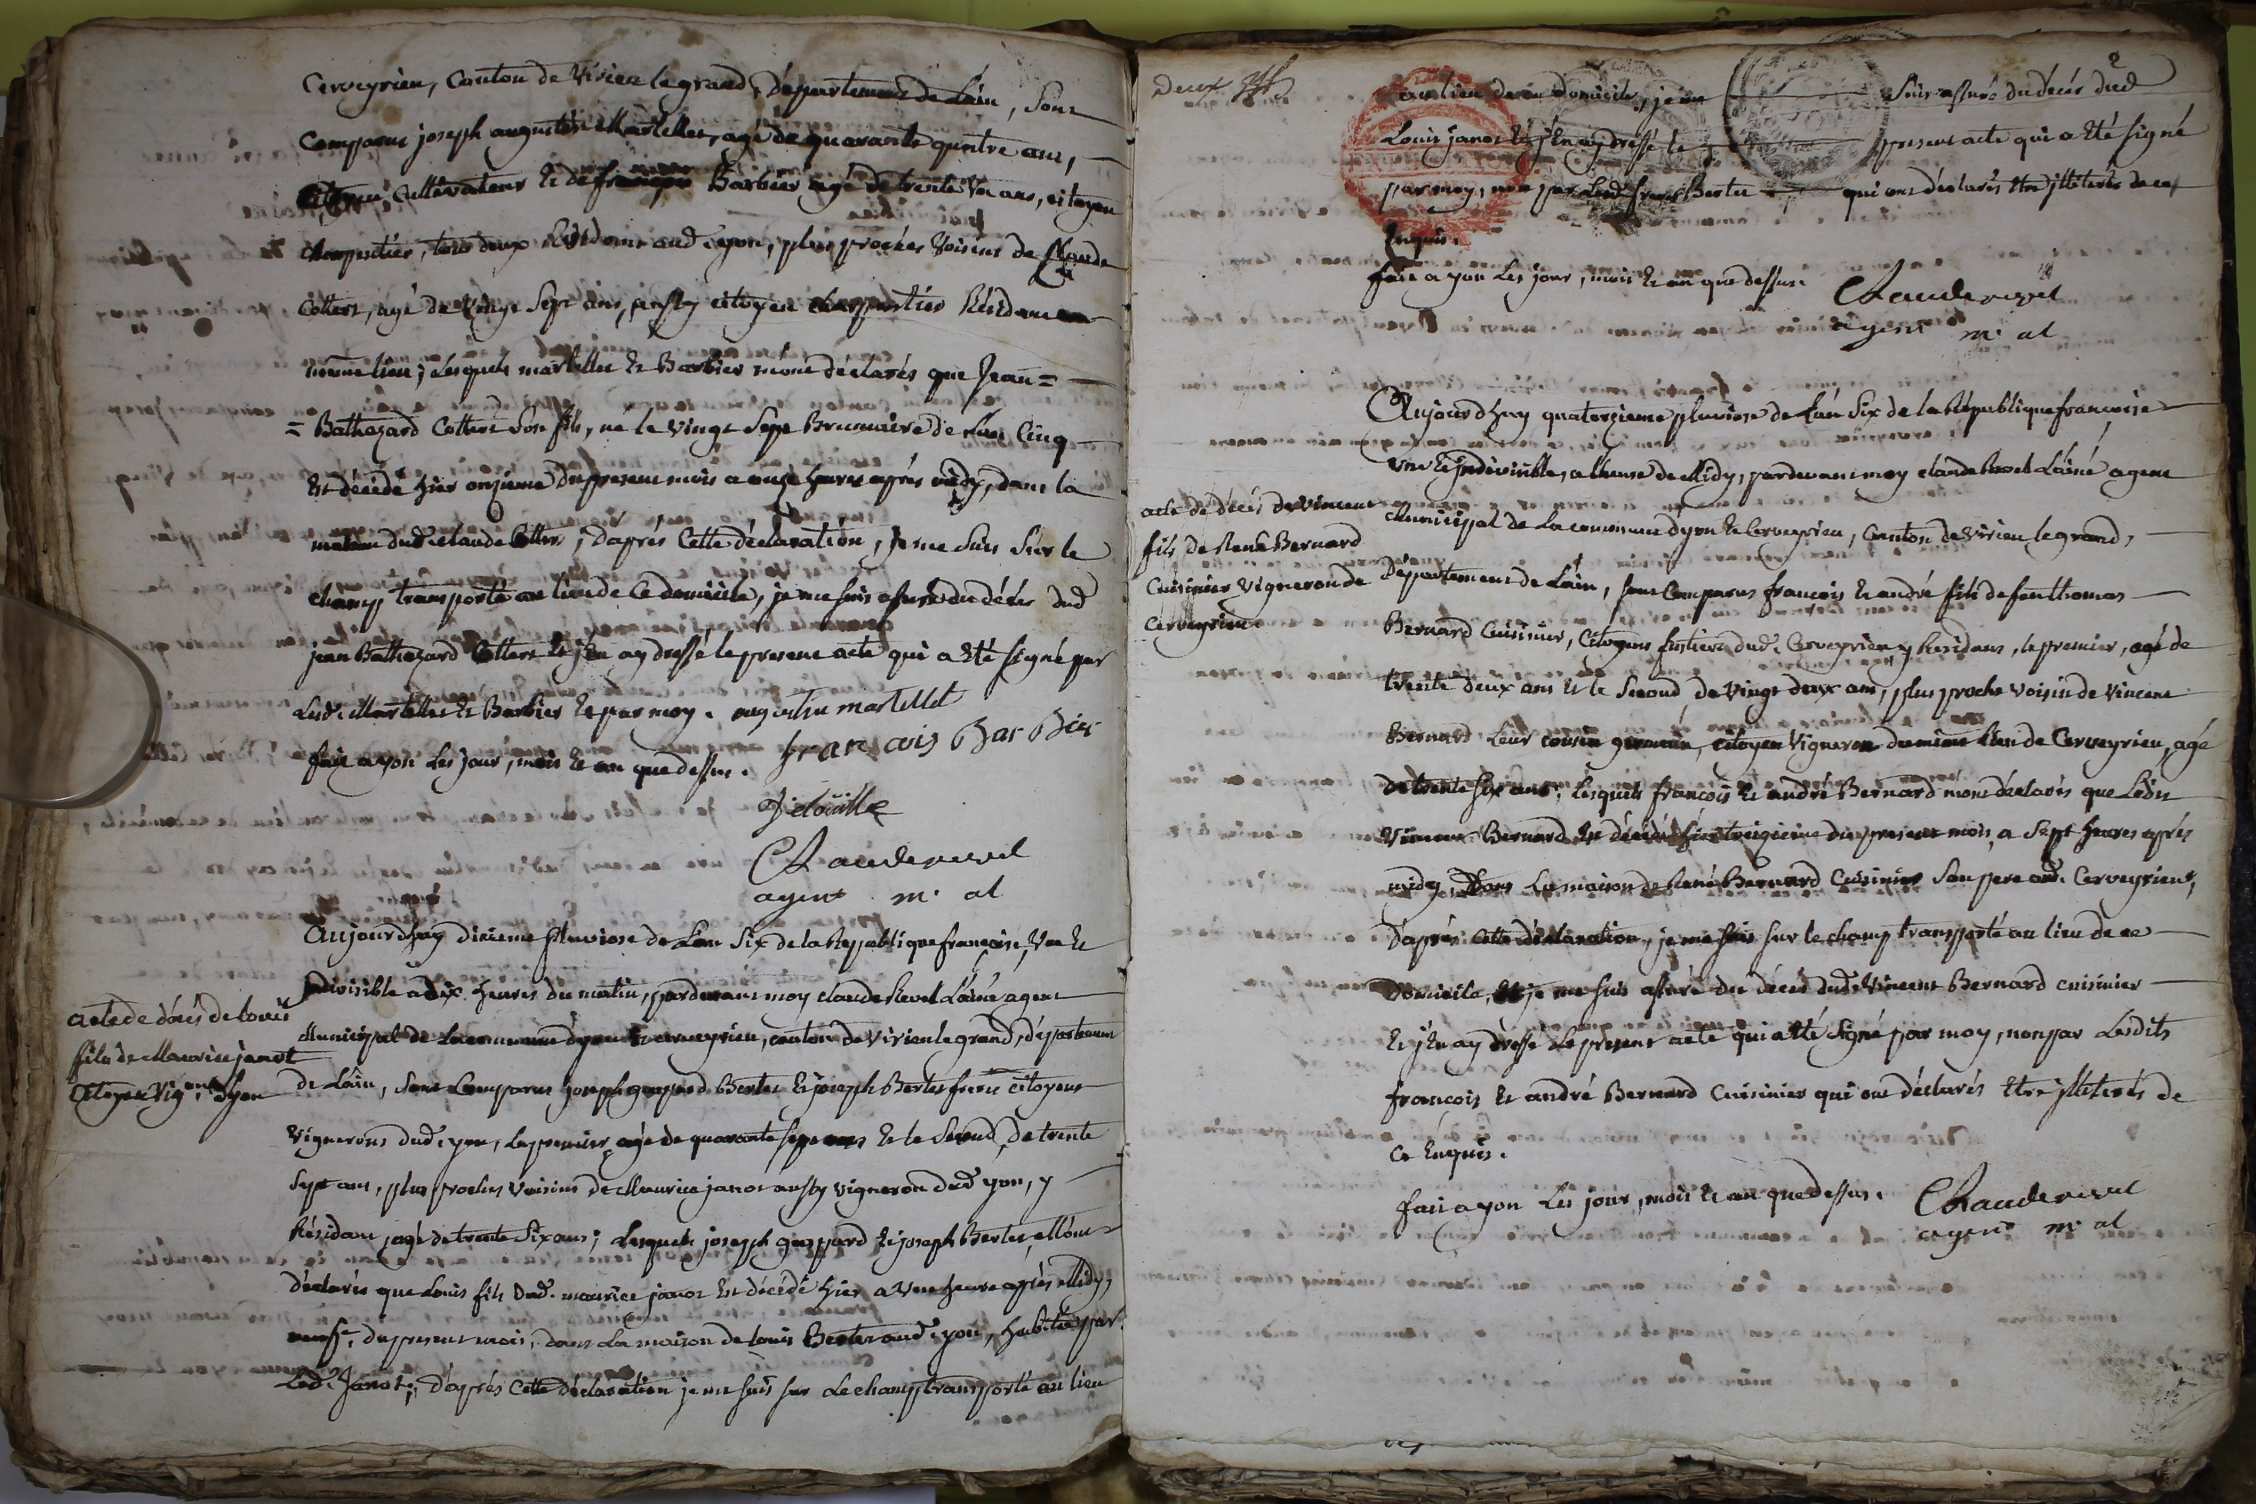 Cerveyrieu, Canton de Virieu le grand, Département de Lain, Sont
Comparus joseph augustin Martellet, agé de quarante quatre ans,
Citoyen Cultivateur Et de françois Barbier agé de trente un ans, citoyen
charpentier, tous deux Résidant aud. yon, plus proches Voisins de Claude
Cottere, agé de Vingt Sept ans, aussy citoyen charpentier Résidant au
même lieu; Lesquels martellet Et Barbier m'ont déclarés que Jean =
= Bathazard Cottere son fils, né le Vingt Sept Brumaire de Lan Cinq
Est décédé hier onzieme du present mois a onze heures après midy, dans la
maison dud. Claude Cottere; D'apres Cette déclaration, Je me Suis Sur le
champ transporté au lieu de Ce domicile, je me suis assuré du décès dud.
jean Bathazard Cottere Et j'En ay dressé le present acte qui a Eté signé par
Lesd. Martellet Et Barbier Et par moy. augustin martellet
fait a yon Les jour, mois Et an que dessus. francois Bar Bier
Claude revel
agent m. al
Aujourdhuy dixieme Pluviose de Lan Six de la Republique françoise, Une Et
Indivisible a dix heures du matin, pardevant moy claude Revel Lainé agent
acte de décès de Louis
fils de Maurice janot
Citoyen Vig.on Dyon
Municipal de La commune dyon Et cerveyrieu, canton de Virieu le grand, département
de Lain, Sont Comparus joseph gaspard Bertet Et joseph Bertet freres citoyens
Vignerons dud. yon, Le premier agé de quarante sept ans Et le Second, de trente
Sept ans, plus proches Voisins de Maurice janot aussy vigneron dud. yon, y
Résidant agé de trente Six ans; Lesquels joseph gaspard Et joseph Bertet, m'ont
déclarés que Louis fils dud. maurice janot Est décédé hier a Une heure après Midy,
neuf, du present mois, dans La maison de Louis Bertet aud. yon, habitée par
Led. Janot; D'après Cette déclaration je me suis sur Le champ transporté au lieu
Deux
2
au lieu de ce Domicile, je me Suis assuré du décès dud.
Louis janot Et j'En ay dressé le present acte qui a Eté signé
par moy, non par Lesd. freres Bertet qui ont déclarés Etre illiterés de ce
Enquis.
fait a yon Les jour, mois Et an que dessus.
Claude revel
agent m. al
Aujourdhuy quatorzieme pluviose de Lan Six de la République françoise
Une Et Indivisible, a lheure de Midy, pardevant moy claude Revel Lainé agent
acte de décès de Vincent
fils de René Bernard
Cuisinier Vigneron de
Cerveyrieu
Municipal de La commune dyon Et Cerveyrieu, Canton de Virieu le grand,
Département de Lain, sont Comparus francois Et andré fils de feu thomas
Bernard Cuisinier, Citoyens dud. Cerveyrieu y Residans, le premier, agé de
trente deux ans Et le Second, de Vingt deux ans, plus proche voisin de Vincent
Bernard Leur cousin germain, citoyen Vigneron du même Lieu de Cerveyrieu, agé
de trente six ans; Lesquels francois Et andré Bernard m'ont déclarés que Ledit
Vincent Bernard Est décédé hier treizieme du present mois, a Sept heures après
midy, Dans La maison de René Bernard Cuisinier Son pere aud. Cerveyrieu,
D'après Cette déclaration, je me suis sur le champ transporté au lieu de ce
Domicile, Et je me suis assuré du décès dud. Vincent Bernard cuisinier
Et j'En ay dressé Le present acte qui a Eté signé par moy, non par Lesdits
francois Et andré Bernard Cuisinier qui ont déclarés Etre illiterés de
Ce Enquis.
fait a yon Les jour, mois Et an que dessus.
Claude revel
agent m. al